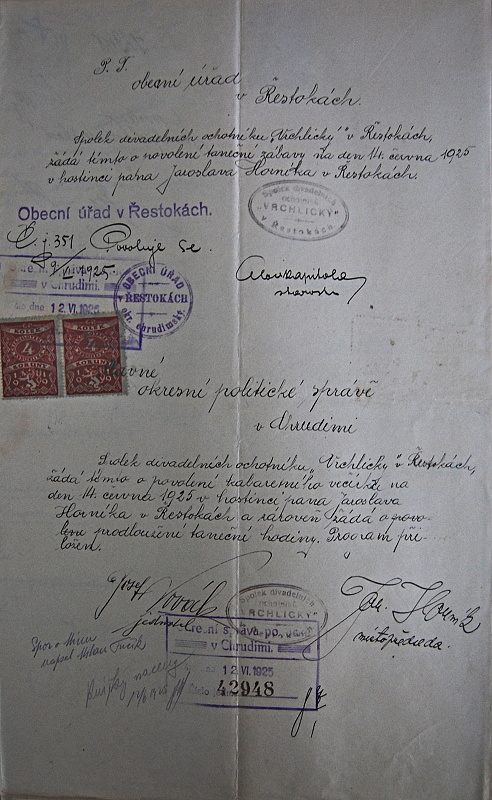 P. T.
obecní úřad
v Řestokách.
Spolek divadelních ochotníků „Vrchlický" v Řestokách,
žádá tímto o povolení taneční zábavy na den 14. června 1925
v hostinci pana Jaroslava Horníka v Řestokách.
Spolek divadelních
ochotníků
„VRCHLICKÝ"
v Řestokách
Obecní úřad v Řestokách.
Č. j. 351. Povoluje se.
9/VI. 1925.
starosta
v Chrudimi.
12.VI.1925
OBECNÍ ÚŘAD
v ŘESTOKÁCH
okr. Chrudimský.
KOLEK KOLEK
okresní politické správě
v Chrudimi
Spolek divadelních ochotníků „Vrchlický" v Řestokách,
žádá tímto o povolení kabaretního večírku na
den 14. června 1925 v hostinci pana Jaroslava
Horníka v Řestokách a zároveň žádá o povo-
lení prodloužení taneční hodiny. Program při-
ložen.
Josef Novák
jednatel
Spolek divadelních
ochotníků
„VRCHLICKÝ"
Jar. Horník
místopředseda.
v Chrudimi.
12.VI.1925
42948